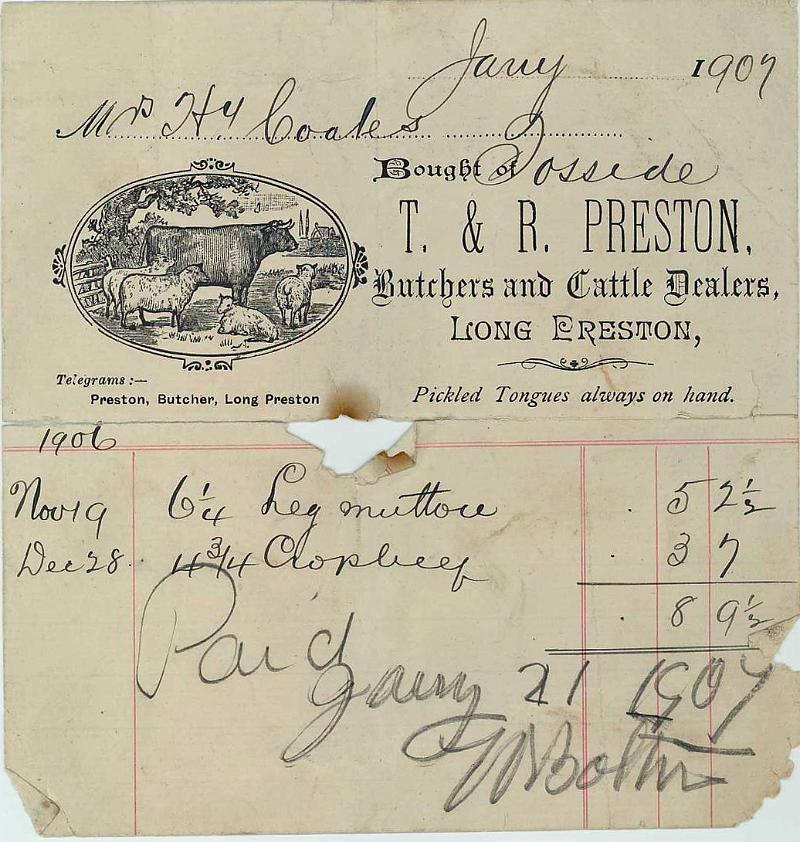 Jany 1907
Mrs Hy Coates
Tosside
Bought of
T. & R. PRESTON,
Butchers and Cattle Dealers,
LONG PRESTON,
Telegrams :—
Preston, Butcher, Long Preston
Pickled Tongues always on hand.
1906
Nov 19 6 1/4 Leg mutton . 5 2 1/2
Dec 28. 4 3/4 Crop beef . 3 7
. 8 9 1/2
Paid
Jany 21 1907